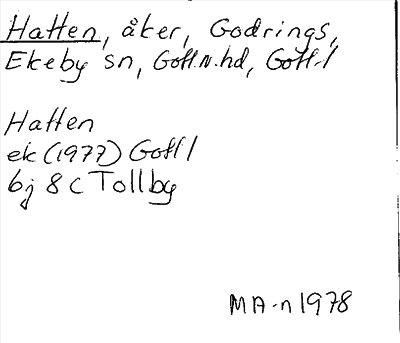 Hatten, åker, Godrings,
Ekeby sn, Gotl.n.hd, Gotl.l
Hatten
ek (1977) Gotl l
bj 8 c Tollby
MA-n 1978